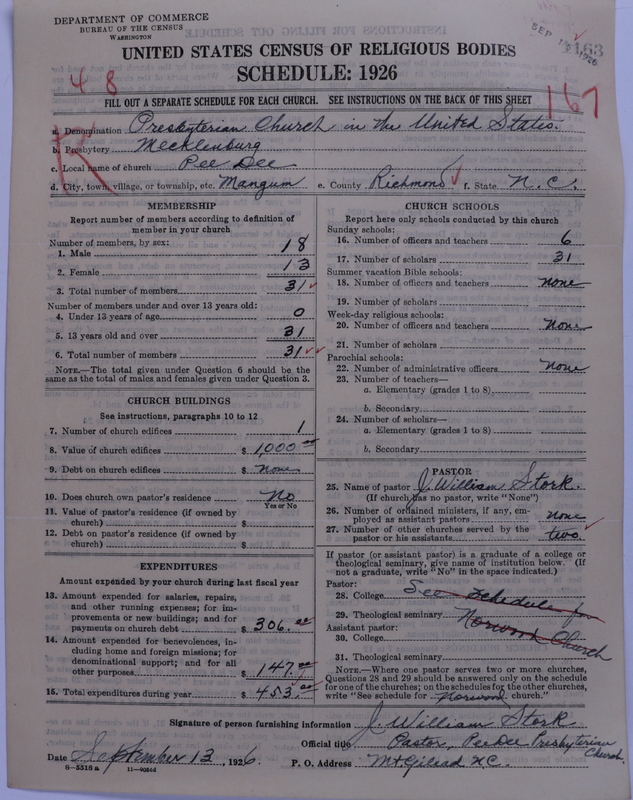 DEPARTMENT OF COMMERCE
BUREAU OF THE CENSUS
WASHINGTON
SEP 1926
163
UNITED STATES CENSUS OF RELIGIOUS BODIES
SCHEDULE: 1926
48
167
FILL OUT A SEPARATE SCHEDULE FOR EACH CHURCH. SEE INSTRUCTIONS ON THE BACK OF THIS SHEET
a. Denomination Presbyterian Church in the United States.
b. Presbytery Mecklenburg
c. Local name of church Pee Dee
d. City, town, village, or township, etc. Mangum e. County Richmond f. State N.C.
MEMBERSHIP
Report number of members according to definition of
member in your church
Number of members, by sex:
1. Male 18
2. Female 13
3. Total number of members 31
Number of members under and over 13 years old:
4. Under 13 years of age 0
5. 13 years old and over 31
6. Total number of members 31
NOTE.—The total given under Question 6 should be the
same as the total of males and females given under Question 3.
CHURCH BUILDINGS
See instructions, paragraphs 10 to 12
7. Number of church edifices 1
8. Value of church edifices $ 1,000 00
9. Debt on church edifices $ None
10. Does church own pastor's residence No
Yes or No
11. Value of pastor's residence (if owned by
church) $
12. Debt on pastor's residence (if owned by
church) $
EXPENDITURES
Amount expended by your church during last fiscal year
13. Amount expended for salaries, repairs,
and other running expenses; for im-
provements or new buildings; and for
payments on church debt $ 306.00
14. Amount expended for benevolences, in-
cluding home and foreign missions; for
denominational support; and for all
other purposes $ 147.00
15. Total expenditures during year $ 453.00
CHURCH SCHOOLS
Report here only schools conducted by this church
Sunday schools:
16. Number of officers and teachers 6
17. Number of scholars 31
Summer vacation Bible schools:
18. Number of officers and teachers none
19. Number of scholars
Week-day religious schools:
20. Number of officers and teachers None
21. Number of scholars
Parochial schools:
22. Number of administrative officers none
23. Number of teachers—
a. Elementary (grades 1 to 8)
b. Secondary
24. Number of scholars—
a. Elementary (grades 1 to 8)
b. Secondary
PASTOR
25. Name of pastor J. William Stork.
(If church has no pastor, write "None")
26. Number of ordained ministers, if any, em-
ployed as assistant pastors none
27. Number of other churches served by the
pastor or his assistants two.
If pastor (or assistant pastor) is a graduate of a college or
theological seminary, give name of institution below. (If
not a graduate, write "No" in the space indicated.)
Pastor:
28. College See schedule for
29. Theological seminary Norwood Church
Assistant pastor:
30. College
31. Theological seminary
NOTE.—Where one pastor serves two or more churches,
Questions 28 and 29 should be answered only on the schedule
for one of the churches; on the schedules for the other churches,
write "See schedule for Norwood church."
Signature of person furnishing information J. William Stork
Official title Pastor, Pee Dee Presbyterian Church.
Date September 13, 1926. P. O. Address Mt. Gilead N.C.
8-5518 a 11-9084d